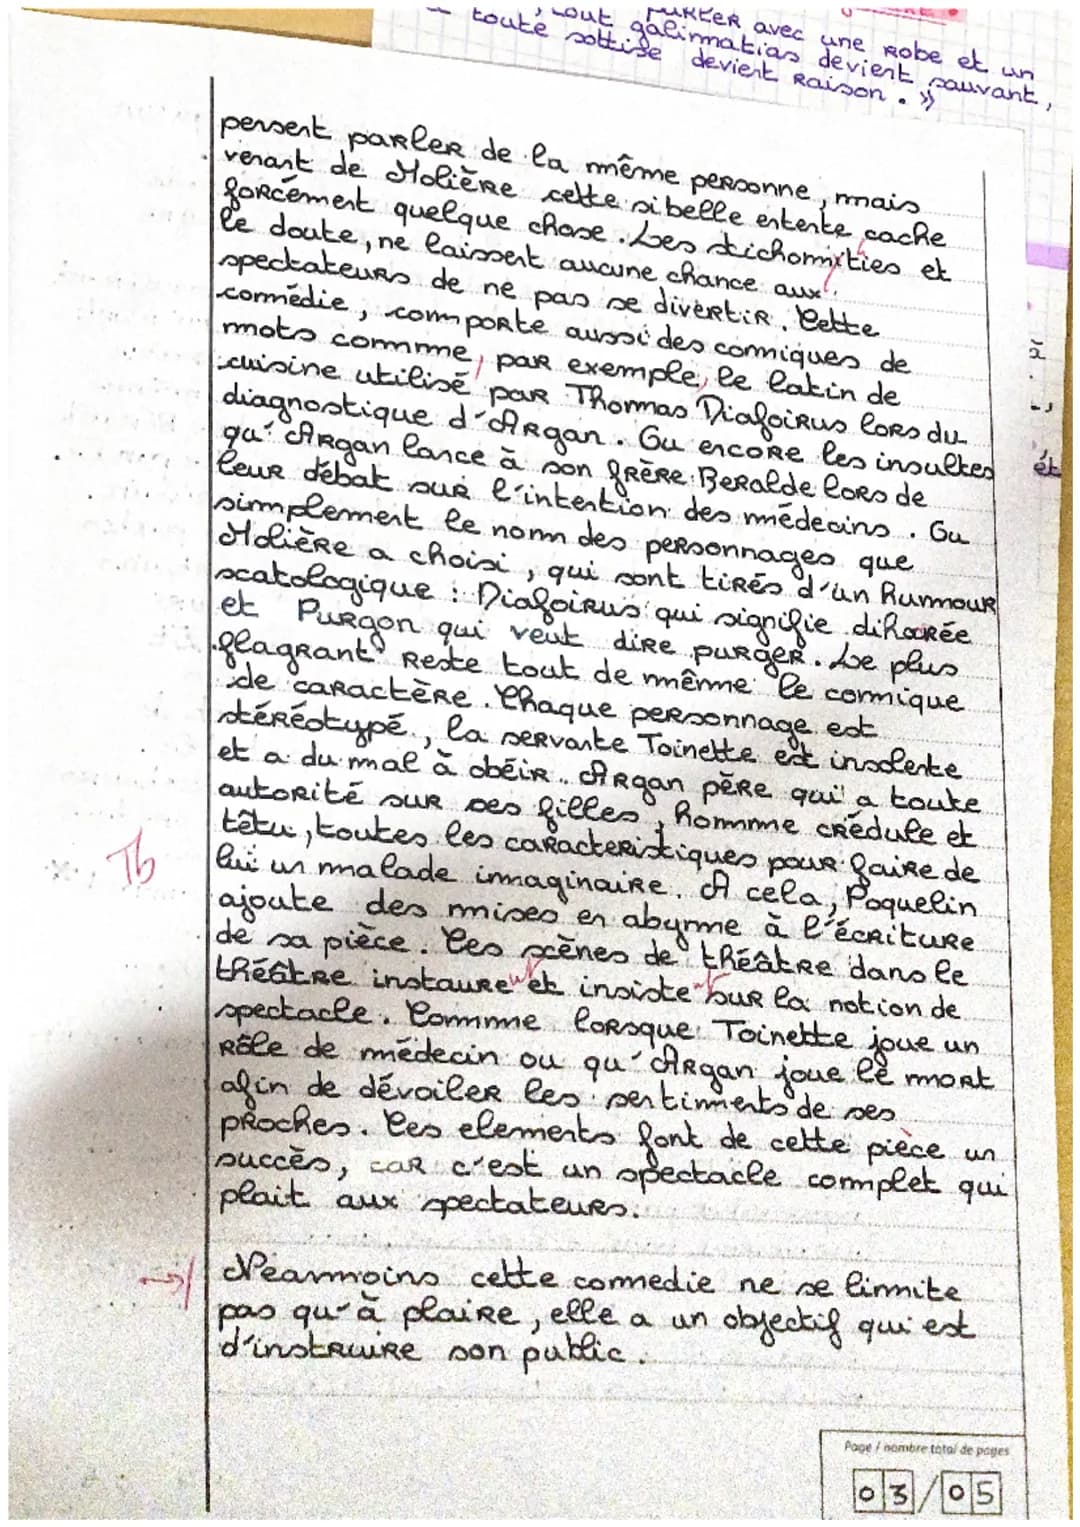 PARLER avec une Robe et un
, tout galimatias devient sauvant,
toute sottise devient Raison. »
persent parler de la même personne, mais
venant de Molière cette si belle entente cache
forcément quelque chose. Les stichomxties et
le doute, ne laissent aucune chance aux
spectateurs de ne pas se divertir. Cette
comédie, comporte aussi des comiques de
mots commme, par exemple, le latin de
cuisine utilisé par Thomas Diafoirus lors du
diagnostique d'Argan. Ou encore les insultes
qu'Argan lance à son frère Beralde lors de
leur débat sur l'intention des médecins. Ou
simplement le nom des personnages que
Molière a choisi, qui sont tirés d'un humour
scatologique : Diafoirus qui signifie dihorrée
et Purgon qui veut dire purger. Le plus
flagrant reste tout de même le comique
de caractère. Chaque personnage est
stéréotypé, la servante Toinette est insolente
et a du mal à obéir. Argan père qui a toute
autorité sur ses filles, homme crédule et
têtu, toutes les caracteristiques pour faire de
Tb
lui un malade imaginaire. A cela, Poquelin
ajoute des mises en abyme à l'écriture
de sa pièce. Ces scènes de théâtre dans le
théâtre instaurent et insistent sur la notion de
spectacle. Comme lorsque Toinette joue un
rôle de médecin ou qu'Argan joue le mort
afin de dévoiler les sentiments de ses
proches. Ces elements font de cette pièce un
succès, car c'est un spectacle complet qui
plait aux spectateurs.
Néanmoins cette comedie ne se limite
pas qu'à plaire, elle a un objectif qui est
d'instruire son public.
Page / nombre total de pages
03/05